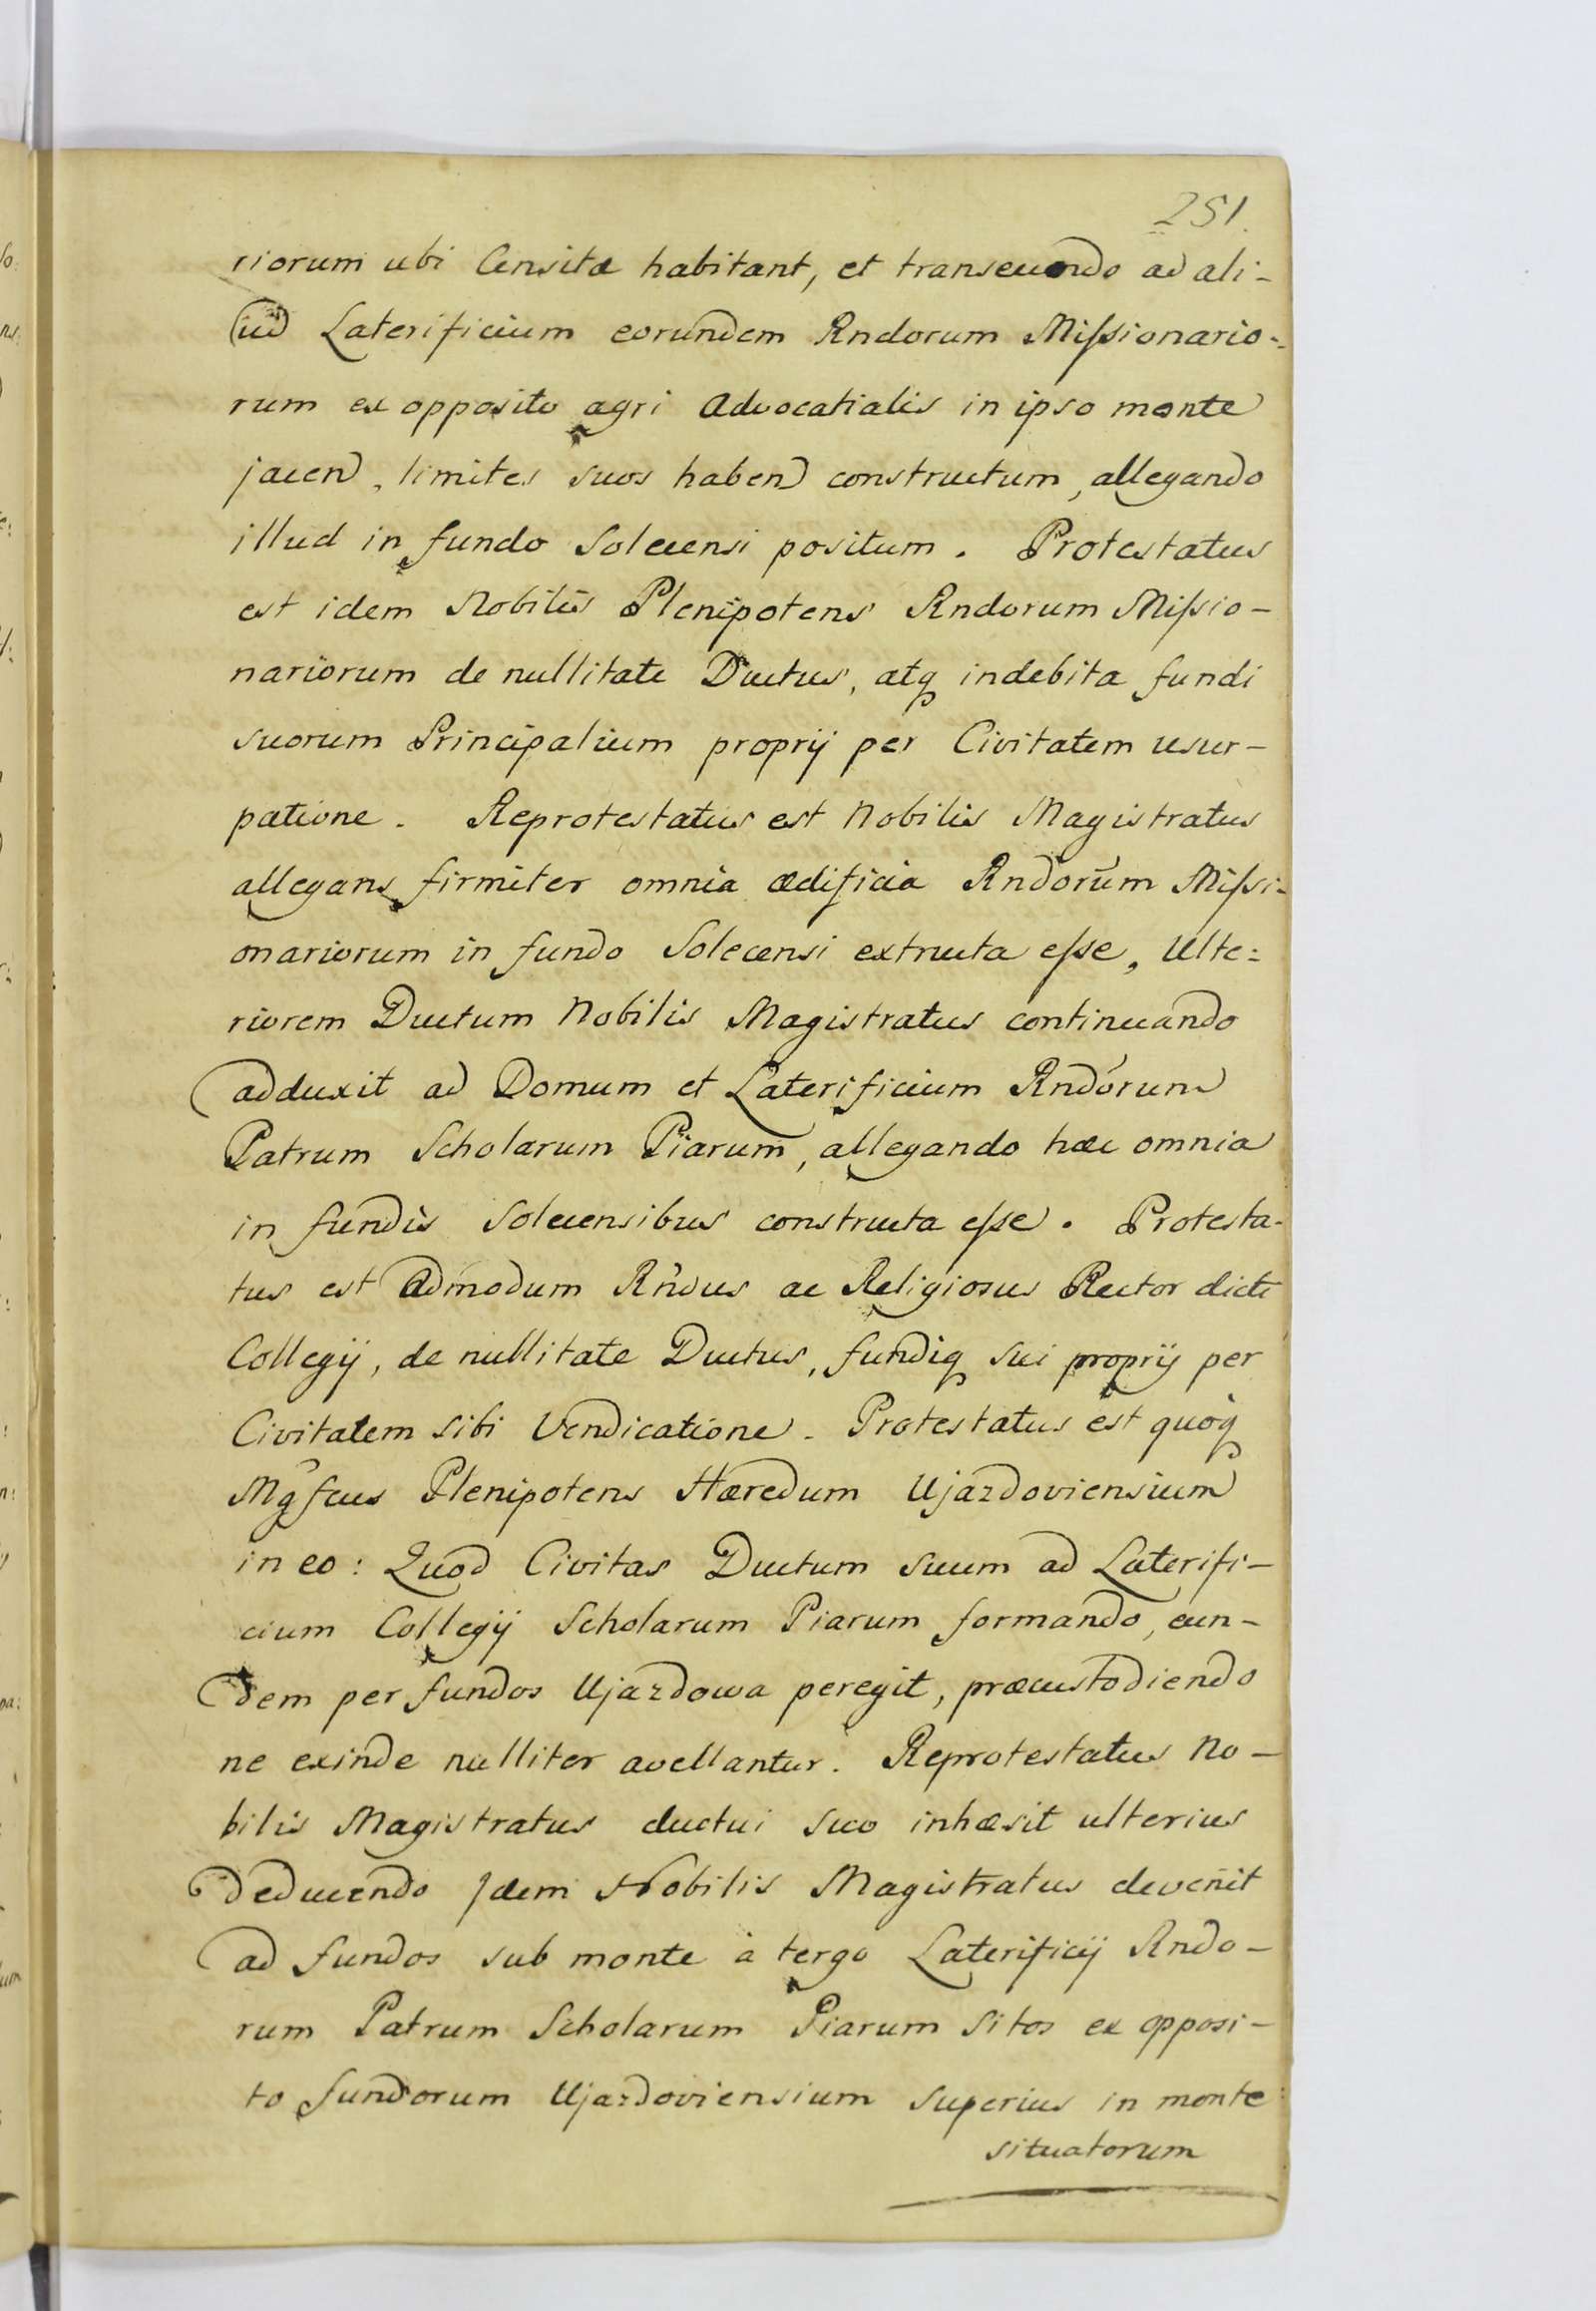 251.
riorum ubi Censitæ habitant, et transeundo ad ali-
ud Laterificium eorundem Rndorum Missionario-
rum ex opposito agri Advocatialis in ipso monte
jacen, limites suos haben constructum, allegando
illud in fundo Solecensi positum. Protestatus
est idem Nobilis Plenipotens Rndorum Missio-
nariorum de nullitate Ductus, atq indebita fundi
suorum Principalium proprij per Civitatem usur-
patione. Reprotestatus est Nobilis Magistratus
allegans firmiter omnia ædificia Rndorum Missi-
onariorum in fundo Solecensi extructa esse, Ulte=
riorem Ductum Nobilis Magistratus continuando
adduxit ad Domum et Laterificium Rndorum
Patrum Scholarum Piarum, allegando hæc omnia
in fundis Solecensibus constructa esse. Protesta-
tus est Admodum Rndus ac Religiosus Rector dicti
Collegij, de nullitate Ductus, fundiq sui proprij per
Civitatem sibi Vendicatione. Protestatus est quoq
Mgfcus Plenipotens Hæredum Ujazdoviensium
in eo: Quod Civitas Ductum suum ad Laterifi-
cium Collegij Scholarum Piarum formando, eun-
dem per fundos Ujazdowa peregit, præcustodiendo
ne exinde nulliter avellantur. Reprotestatus No-
bilis Magistratus ductui suo inhæsit ulterius
Deducendo Idem Nobilis Magistratus devenit
ad fundos sub monte à tergo Laterificij Rndo-
rum Patrum Scholarum Piarum sitos ex opposi-
to fundorum Ujazdoviensium superius in monte
situatorum